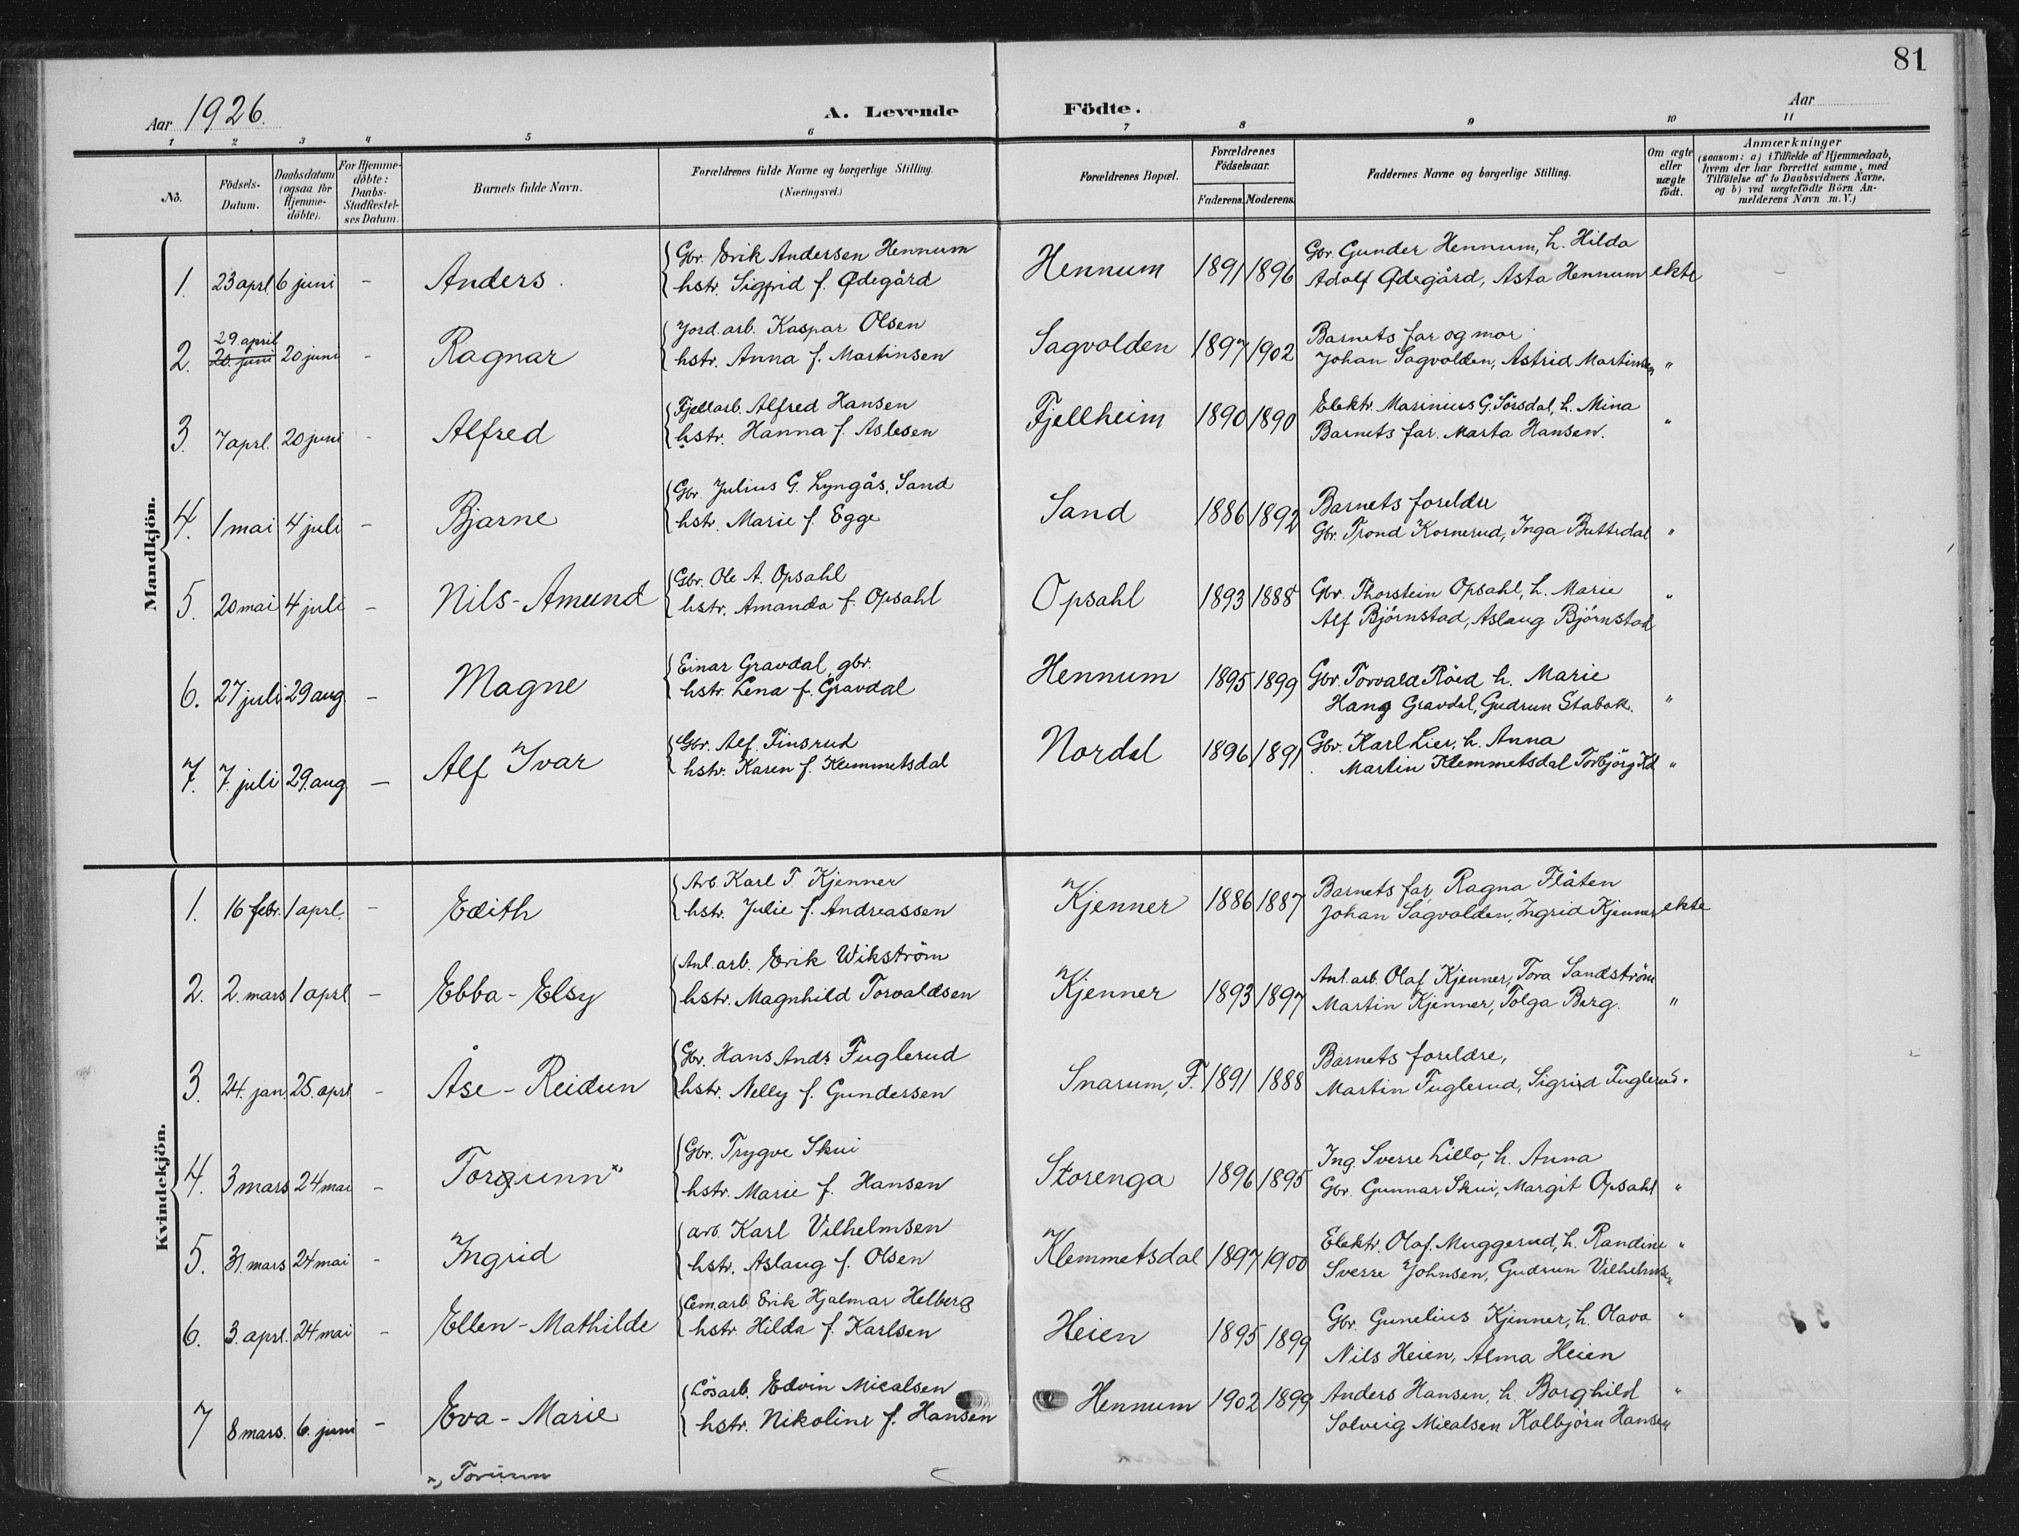 81
Aar 1926.
A. Levende Födte.
Aar
1 2 3 4 5 6 7 8 9 10 11
No.
Födsels-Datum.
Daabsdatum (ogsaa for Hjemmedöbte).
For Hjemmedöbte: Daabs-Stadfestelses Datum.
Barnets fulde Navn.
Forældrenes fulde Navne og borgerlige Stilling. (Næringsvei.)
Forældrenes Bopæl.
Forældrenes Födselsaar.
Faderens. Moderens.
Faddernes Navne og borgerlige Stilling.
Om ægte eller uægte födt.
Anmærkninger
(saasom: a) i Tilfælde af Hjemmedaab,
hvem der har forrettet samme, med
Tilföielse af to Daabsvidners Navne,
og b) ved uægtefödte Börn Anmelderens Navn m. V.)
Mandkjön.
1. 23 aprl. 6 juni - Anders.
Gbr. Erik Andersen Hennum
hstr. Sigrid f. Ødegård
Hennum 1891 1896
Gbr. Gunder Hennum, h. Hilda
Adolf Ødegård, Asta Hennum ekte -
2. 29 april 20 juni 20 juni - Ragnar
Jord.arb. Kaspar Olsen
hstr. Anna f. Martinsen
Sagvolden 1897 1902
Barnets far og mor
Johan Sagvolden, Astrid Martinsen "
3 7 aprl. 20 juni - Alfred
Fjellarb. Alfred Hansen
hstr. Hanna f. Aslesen
Fjellheim 1890 1890
Elektr. Marinius G. Sörsdal, h. Mina
Barnets far. Marta Hansen. "
4. 1 mai 4 juli - Bjarne
Gbr. Julius G. Lyngås, Sand
hstr. Marie f. Egge
Sand 1886 1892
Barnets foreldre
Gbr. Trond Kornerud, Inga Buttedal "
5. 20 mai 4 juli - Nils-Amund
Gbr. Ole A. Opsahl
hstr. Amanda f. Opsahl
Opsahl 1893 1888
Gbr. Thorstein Opsahl, h. Marie
Alf Björnstad, Aslaug Björnstad "
6. 27 juli 29 aug - Magne
Einar Gravdal, gbr.
hstr. Lena f. Gravdal
Hennum 1895 1899
Gbr. Torvald Röed h. Marie
Hans Gravdal, Gudrun Stabak. "
7. 7. juli 29. aug - Alf Ivar
Gbr. Alf. Finsrud
hstr. Karen f. Klemmetsdal
Nordal 1896 1891
Gbr. Karl Lier, h. Anna
Martin Klemmetsdal Torbjörg Kd "
Kvindekjön.
1. 16 febr. 1 aprl. - Edith
Arb. Karl T. Kjenner
hstr. Julie f. Andreassen
Kjenner 1886 1887
Barnets far, Ragna Flåten
Johan Sagvolden, Ingrid Kjenner ekte
2. 2. mars 1 aprl - Ebba-Elsy
Anl.arb. Erik Wikström
hstr. Magnhild Torvaldsen
Kjenner 1893 1897
Anl. arb. Olaf Kjenner, Tora Sandström
Martin Kjenner, Tolga Berg. "
3. 24. jan. 25. aprl - Åse-Reidun
Gbr. Hans Ands Fuglerud
hstr. Nelly f. Gundersen
Snarum, F. 1891 1888
Barnets foreldre,
Martin Fuglerud, Sigrid Fuglerud.
4. 3 mars 24 mai - Torgunn x)
Gbr. Trygve Skui
hstr. Marie f. Hansen
Storenga 1896 1895
Ing. Sverre Lillo, h. Anna
Gbr. Gunnar Skui, Margit Opsahl "
5. 31. mars 24 mai - Ingrid
arb. Karl Vilhelmsen
hstr. Aslaug f. Olsen
Klemmetsdal 1897 1900
Elektr. Olaf. Muggerud, h. Randine "
Sverre Johnsen, Gudrun Vilhelmsen
6. 3. aprl. 24. mai - Ellen-Mathilde
Cem.arb. Erik Hjalmar Helberg
hstr. Hilda f. Karlsen
Heien 1895 1899
Gbr. Gunelius Kjenner, h. Olava "
Nils Heien, Alma Heien
7 8 mars. 6. juni - Eva-Marie
Lösarb. Edvin Micalsen
hstr. Nikoline f. Hansen
Hennum 1902 1899
Anders Hansen, h. Borghild "
Solveig Micalsen Kolbjörn Hansen
x) Torunn